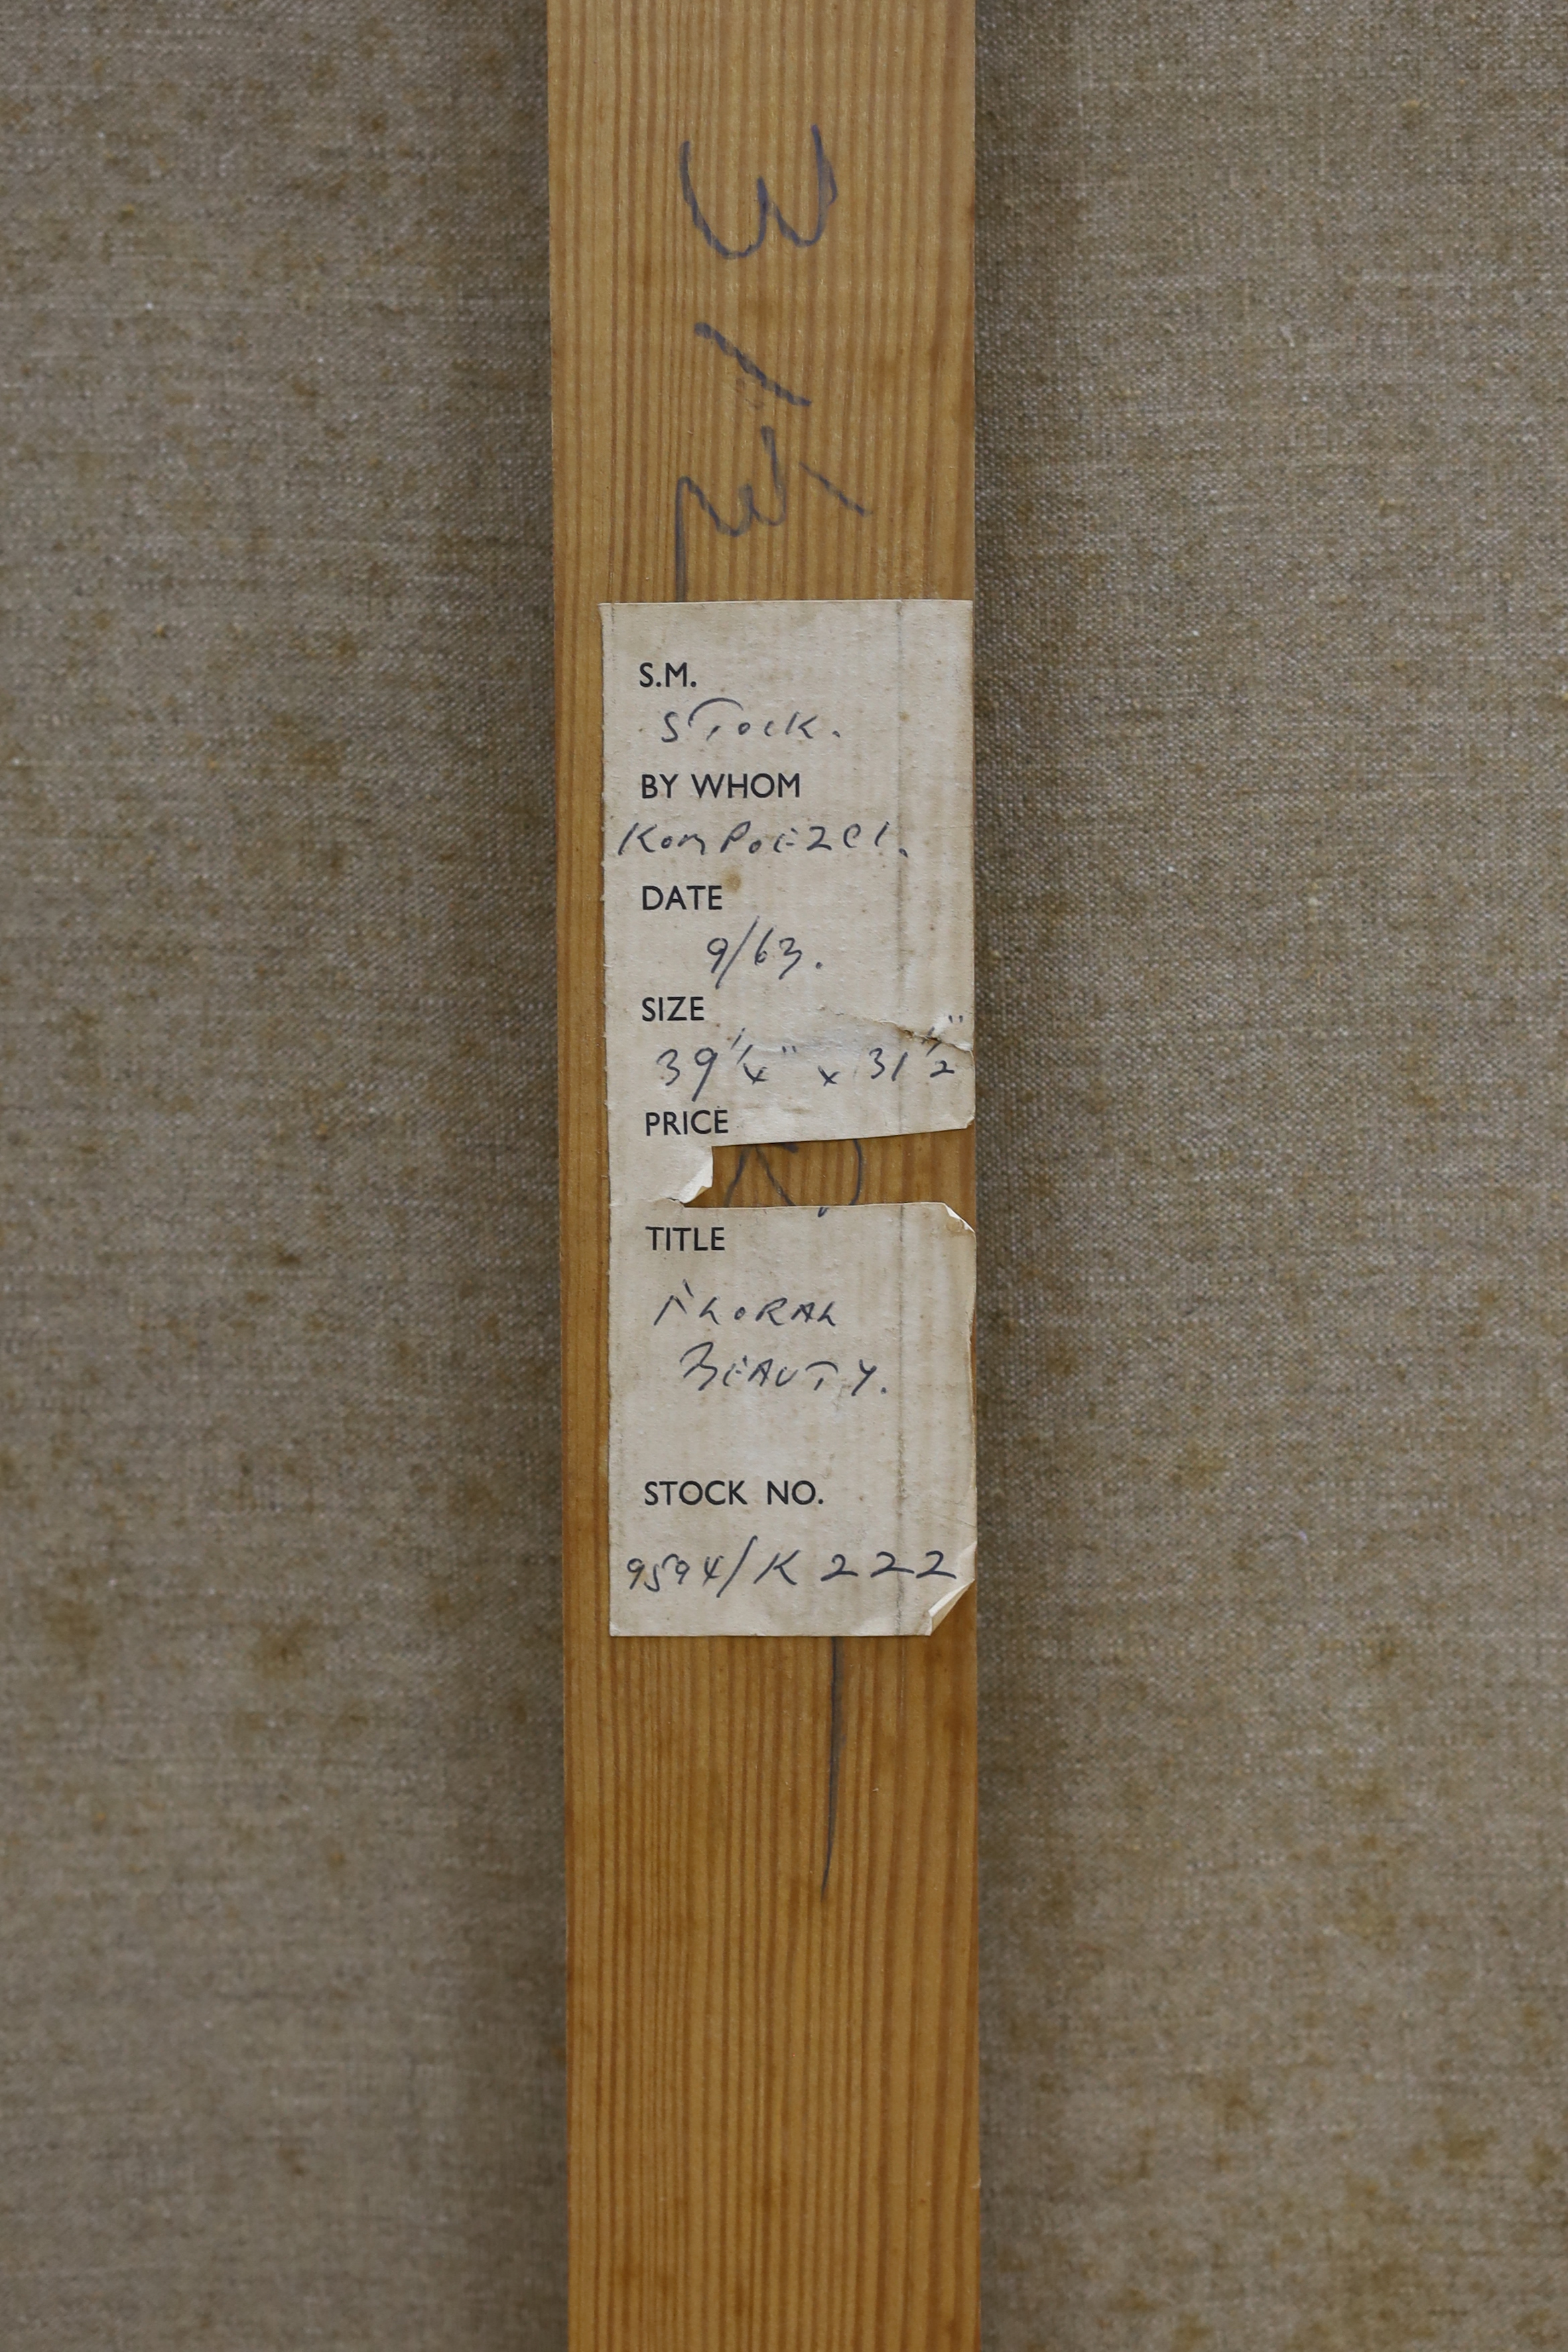 S.M.
STock.
BY WHOM
KomPoEzei.
DATE
9/63.
SIZE
39 1/4" x 31 1/2"
PRICE
TITLE
FLORAL
BEAUTY.
STOCK NO.
9594/K 222